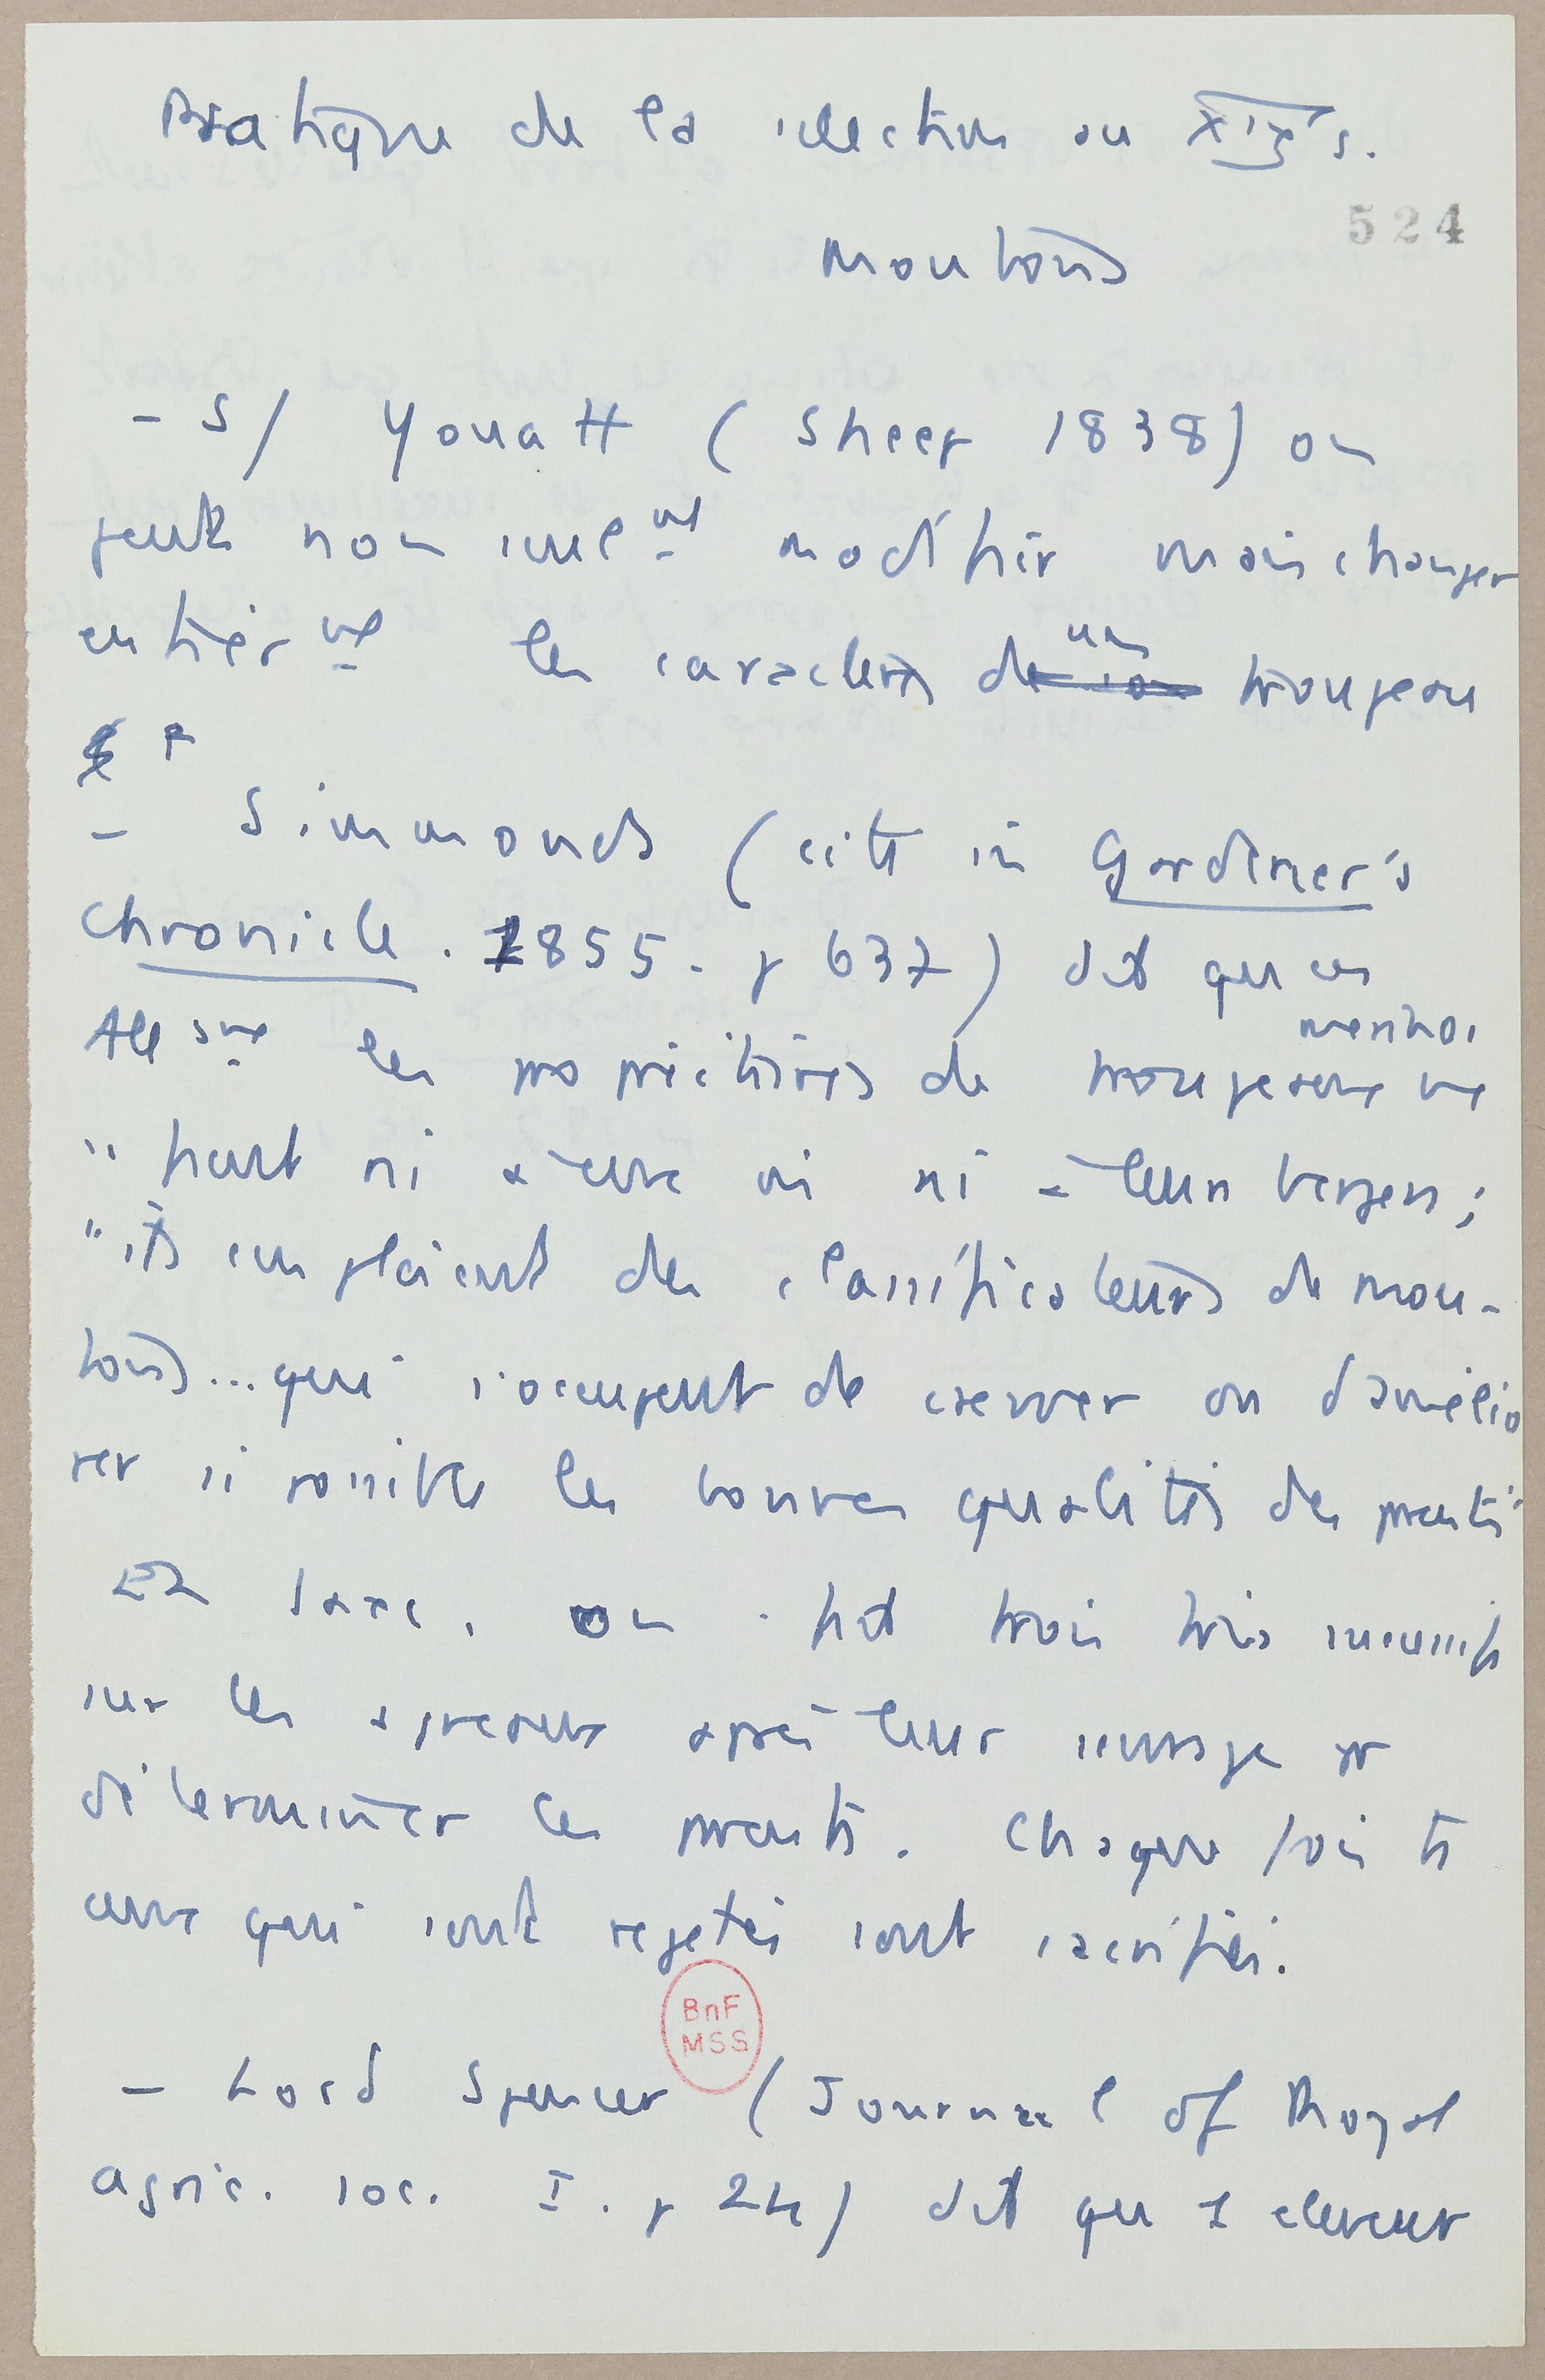 Pratique de la selection au XIXe s.
524
Moutons
- S/ Youatt (Sheep 1838) on
peut non seulemt modifier mais changer
entièremt les caracteres d'un troupeau
- Simmonds (cité in Gardener's
Chronicle. 1855. p 637) dit qu'en
Allemagne les propriétaires de troupeaux merinos ne
"fient ni à eux ni à leurs bergers;
"ils emploient des classificateurs de mou-
tons... qui s'occupent de conserver ou d'amélio
rer si possible les bonnes qualités des parents"
En Saxe, on fait trois tris successifs
sur les agneaux après leur sevrage pr
déterminer les parents. Chaque fois ts
ceux qui sont rejetés sont sacrifiés.
BnF
MSS
- Lord Spencer (Journal of Royal
Agric. soc. I. p 24) dit que 1 eleveur